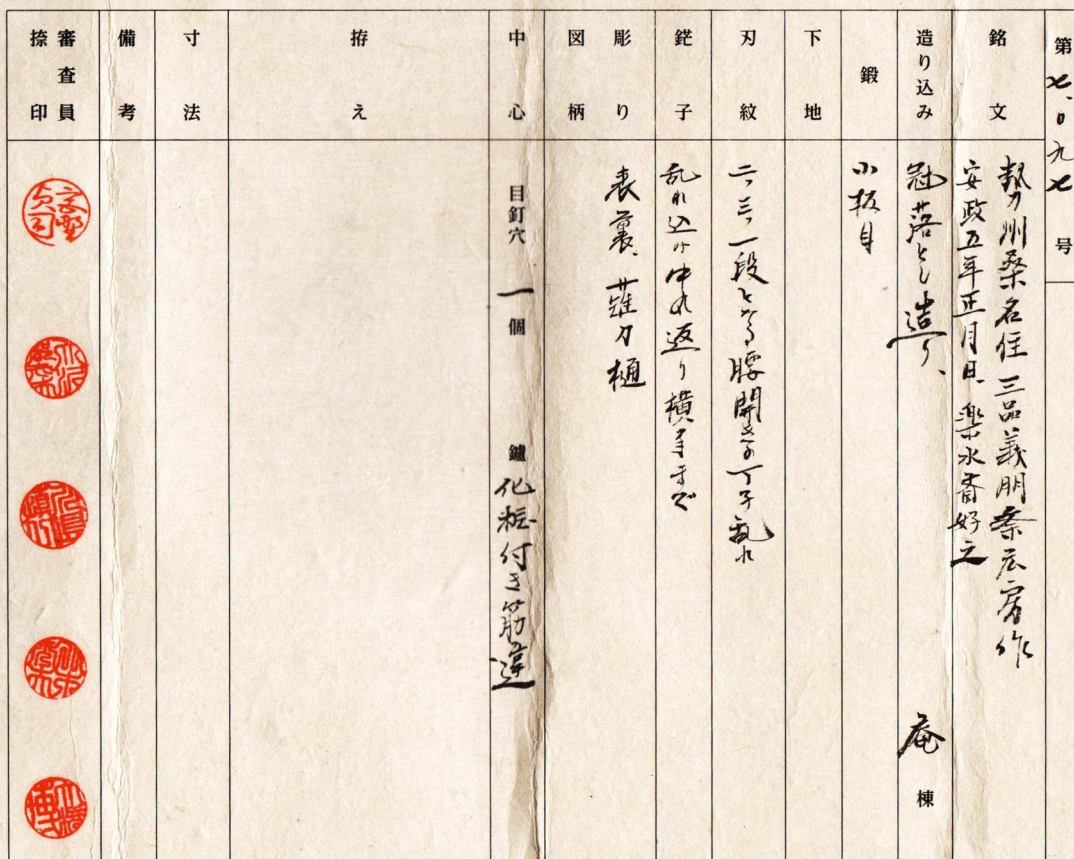 第七、〇九七号
銘文
勢州桑名住三品義明秦広房作
安政五年正月日、楽水斎好之
造り込み
冠落とし造り、
庵棟
鍛
小板目
下地
刃紋
二つ三つ一段となる腰開き の丁子乱れ
鋩子
乱れ込み中丸返り横手まで
彫り
図柄
表裏、薙刀樋
中心
目釘穴 一 個
鑢 化粧付き筋違
拵え
寸法
備考
審査員
捺印